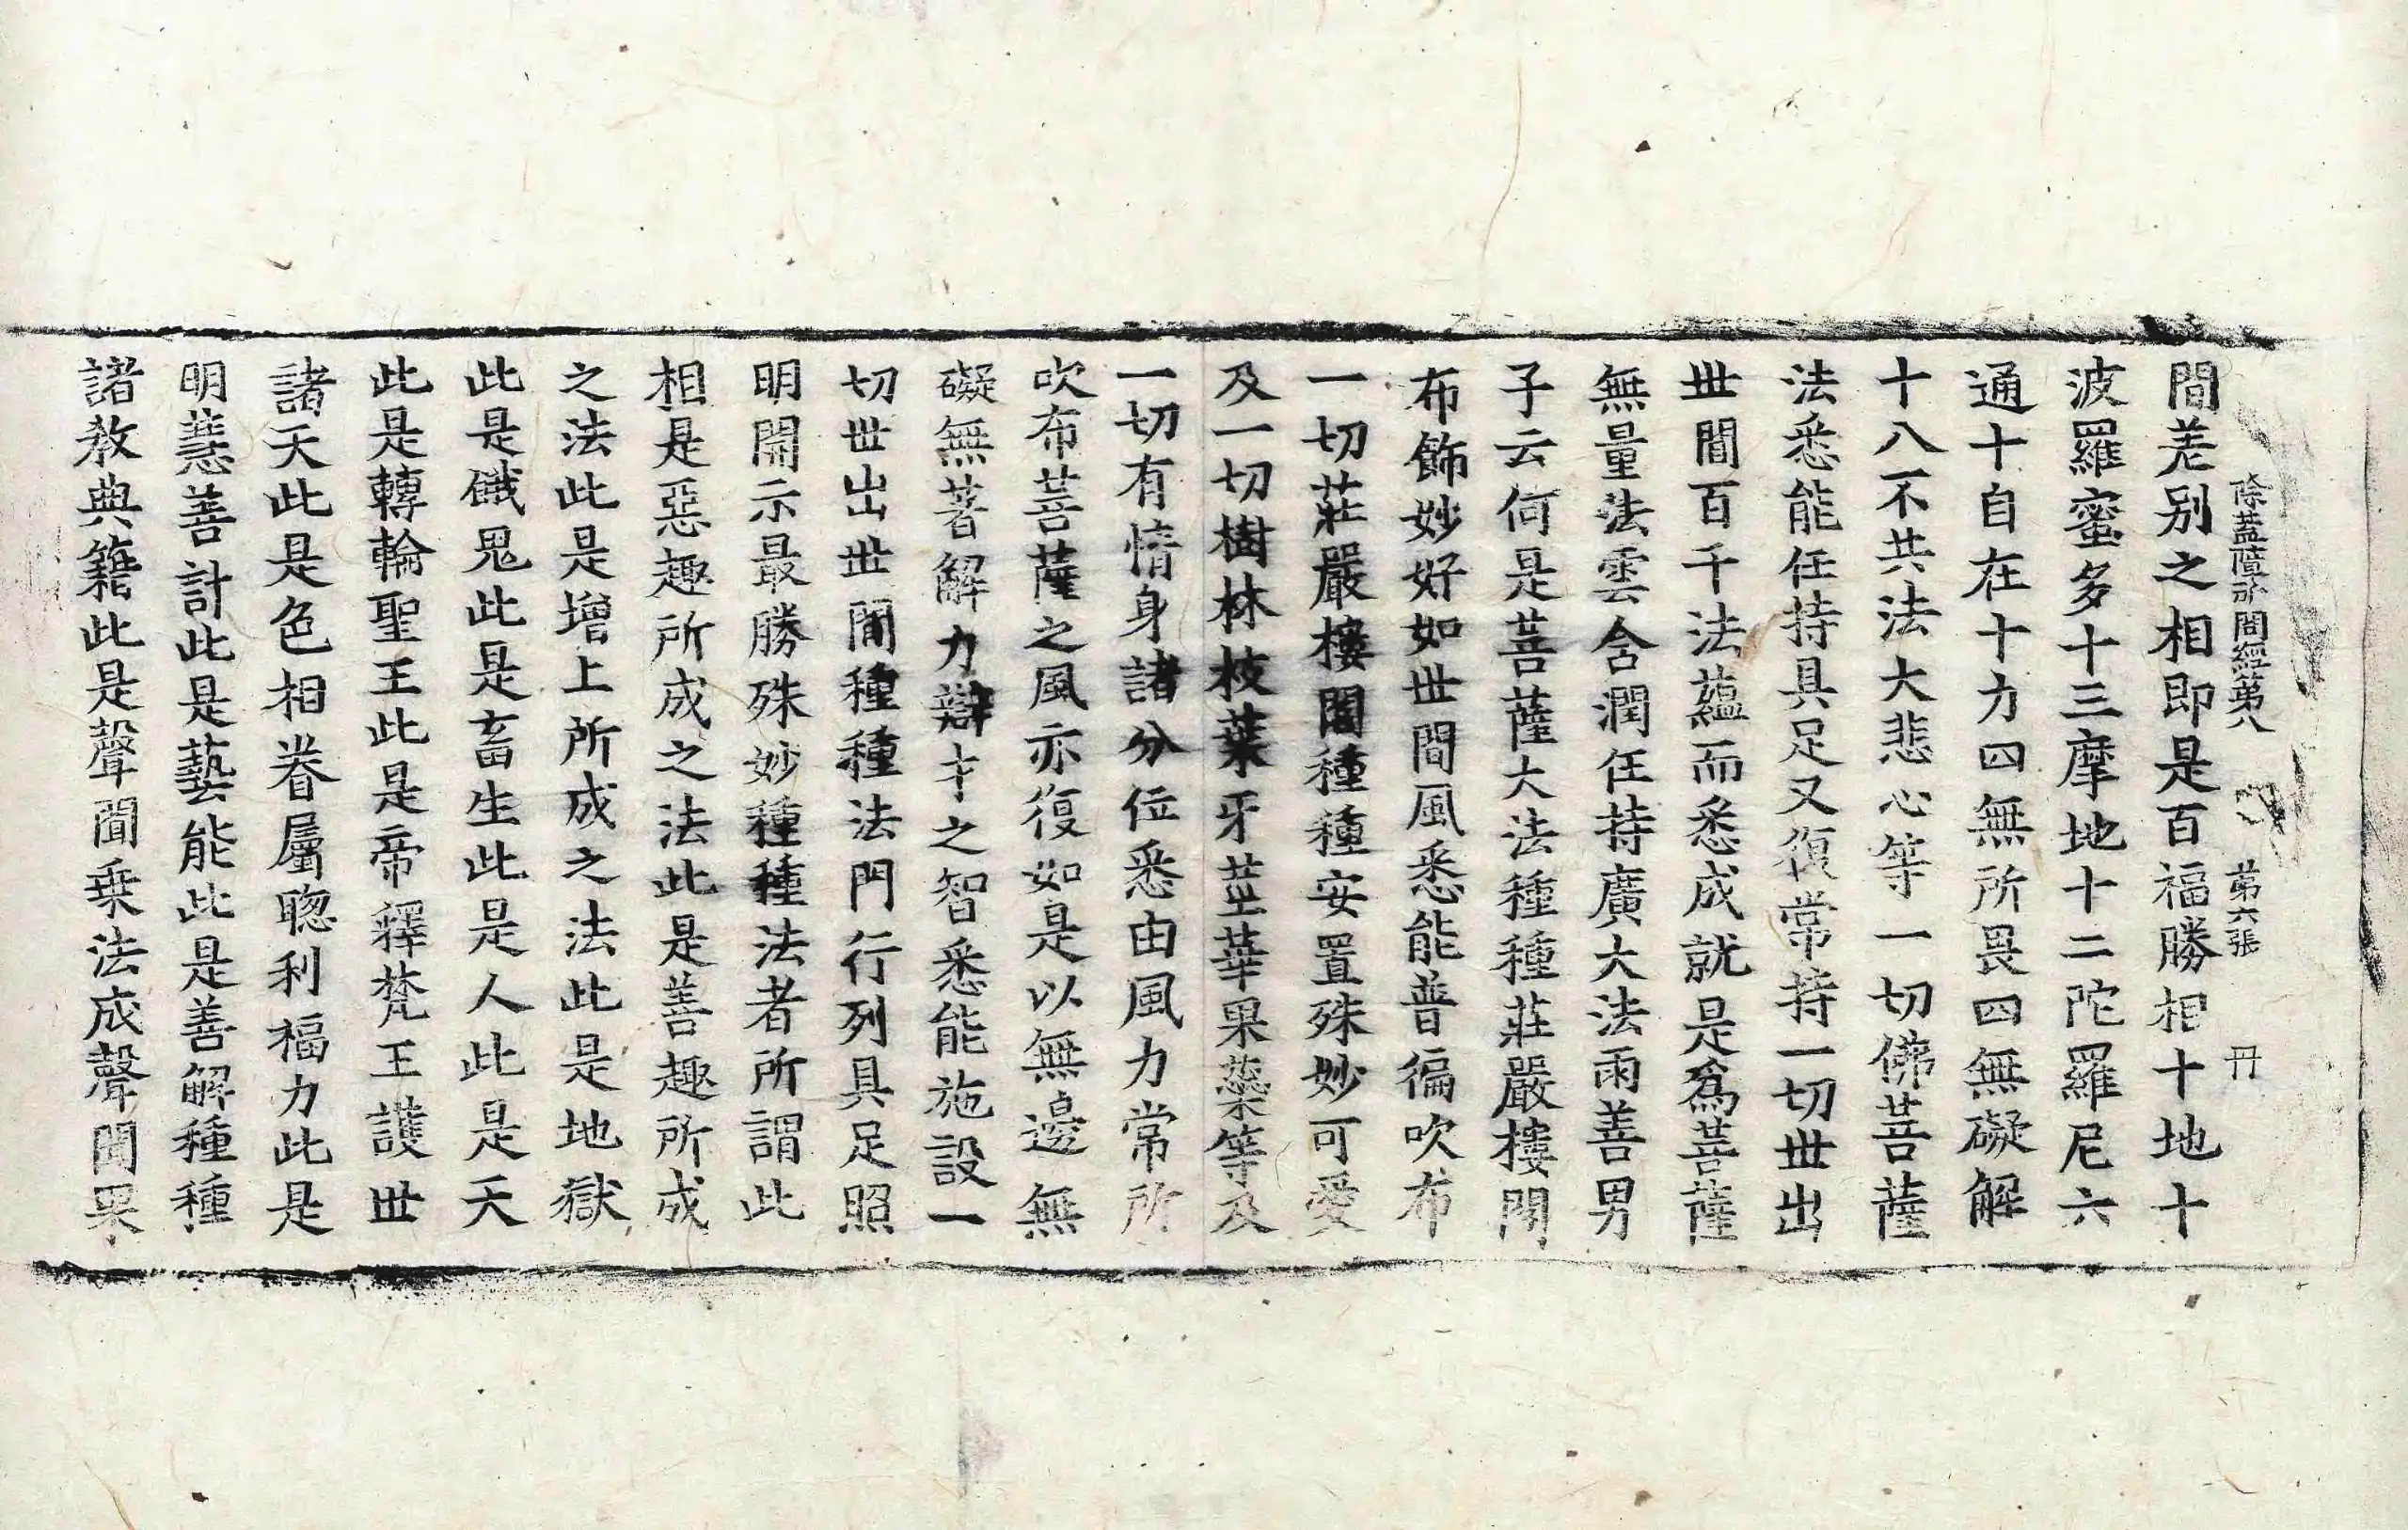 除蓋障所問經第八　第六張　冊
間差別之相即是百福勝相十地十
波羅蜜多十三摩地十二陀羅尼六
通十自在十力四無所畏四無礙解
十八不共法大悲心等一切佛菩薩
法悉能任持具足又復常持一切世出
世間百千法蘊而悉成就是為菩薩
無量法雲含潤任持廣大法雨善男
子云何是菩薩大法種種莊嚴樓閣
布飾妙好如世間風悉能普徧吹布
一切莊嚴樓閣種種安置殊妙可愛
及一切樹林枝葉牙莖華果蘂等及
一切有情身諸分位悉由風力常所
吹布菩薩之風亦復如是以無邊無
礙無著解力辯才之智悉能施設一
切世出世間種種法門行列具足照
明開示最勝殊妙種種法者所謂此
相是惡趣所成之法此是善趣所成
之法此是增上所成之法此是地獄
此是餓鬼此是畜生此是人此是天
此是轉輪聖王此是帝釋梵王護世
諸天此是色相眷屬聦利福力此是
明慧善計此是藝能此是善解種種
諸教典籍此是聲聞乗法成聲聞果